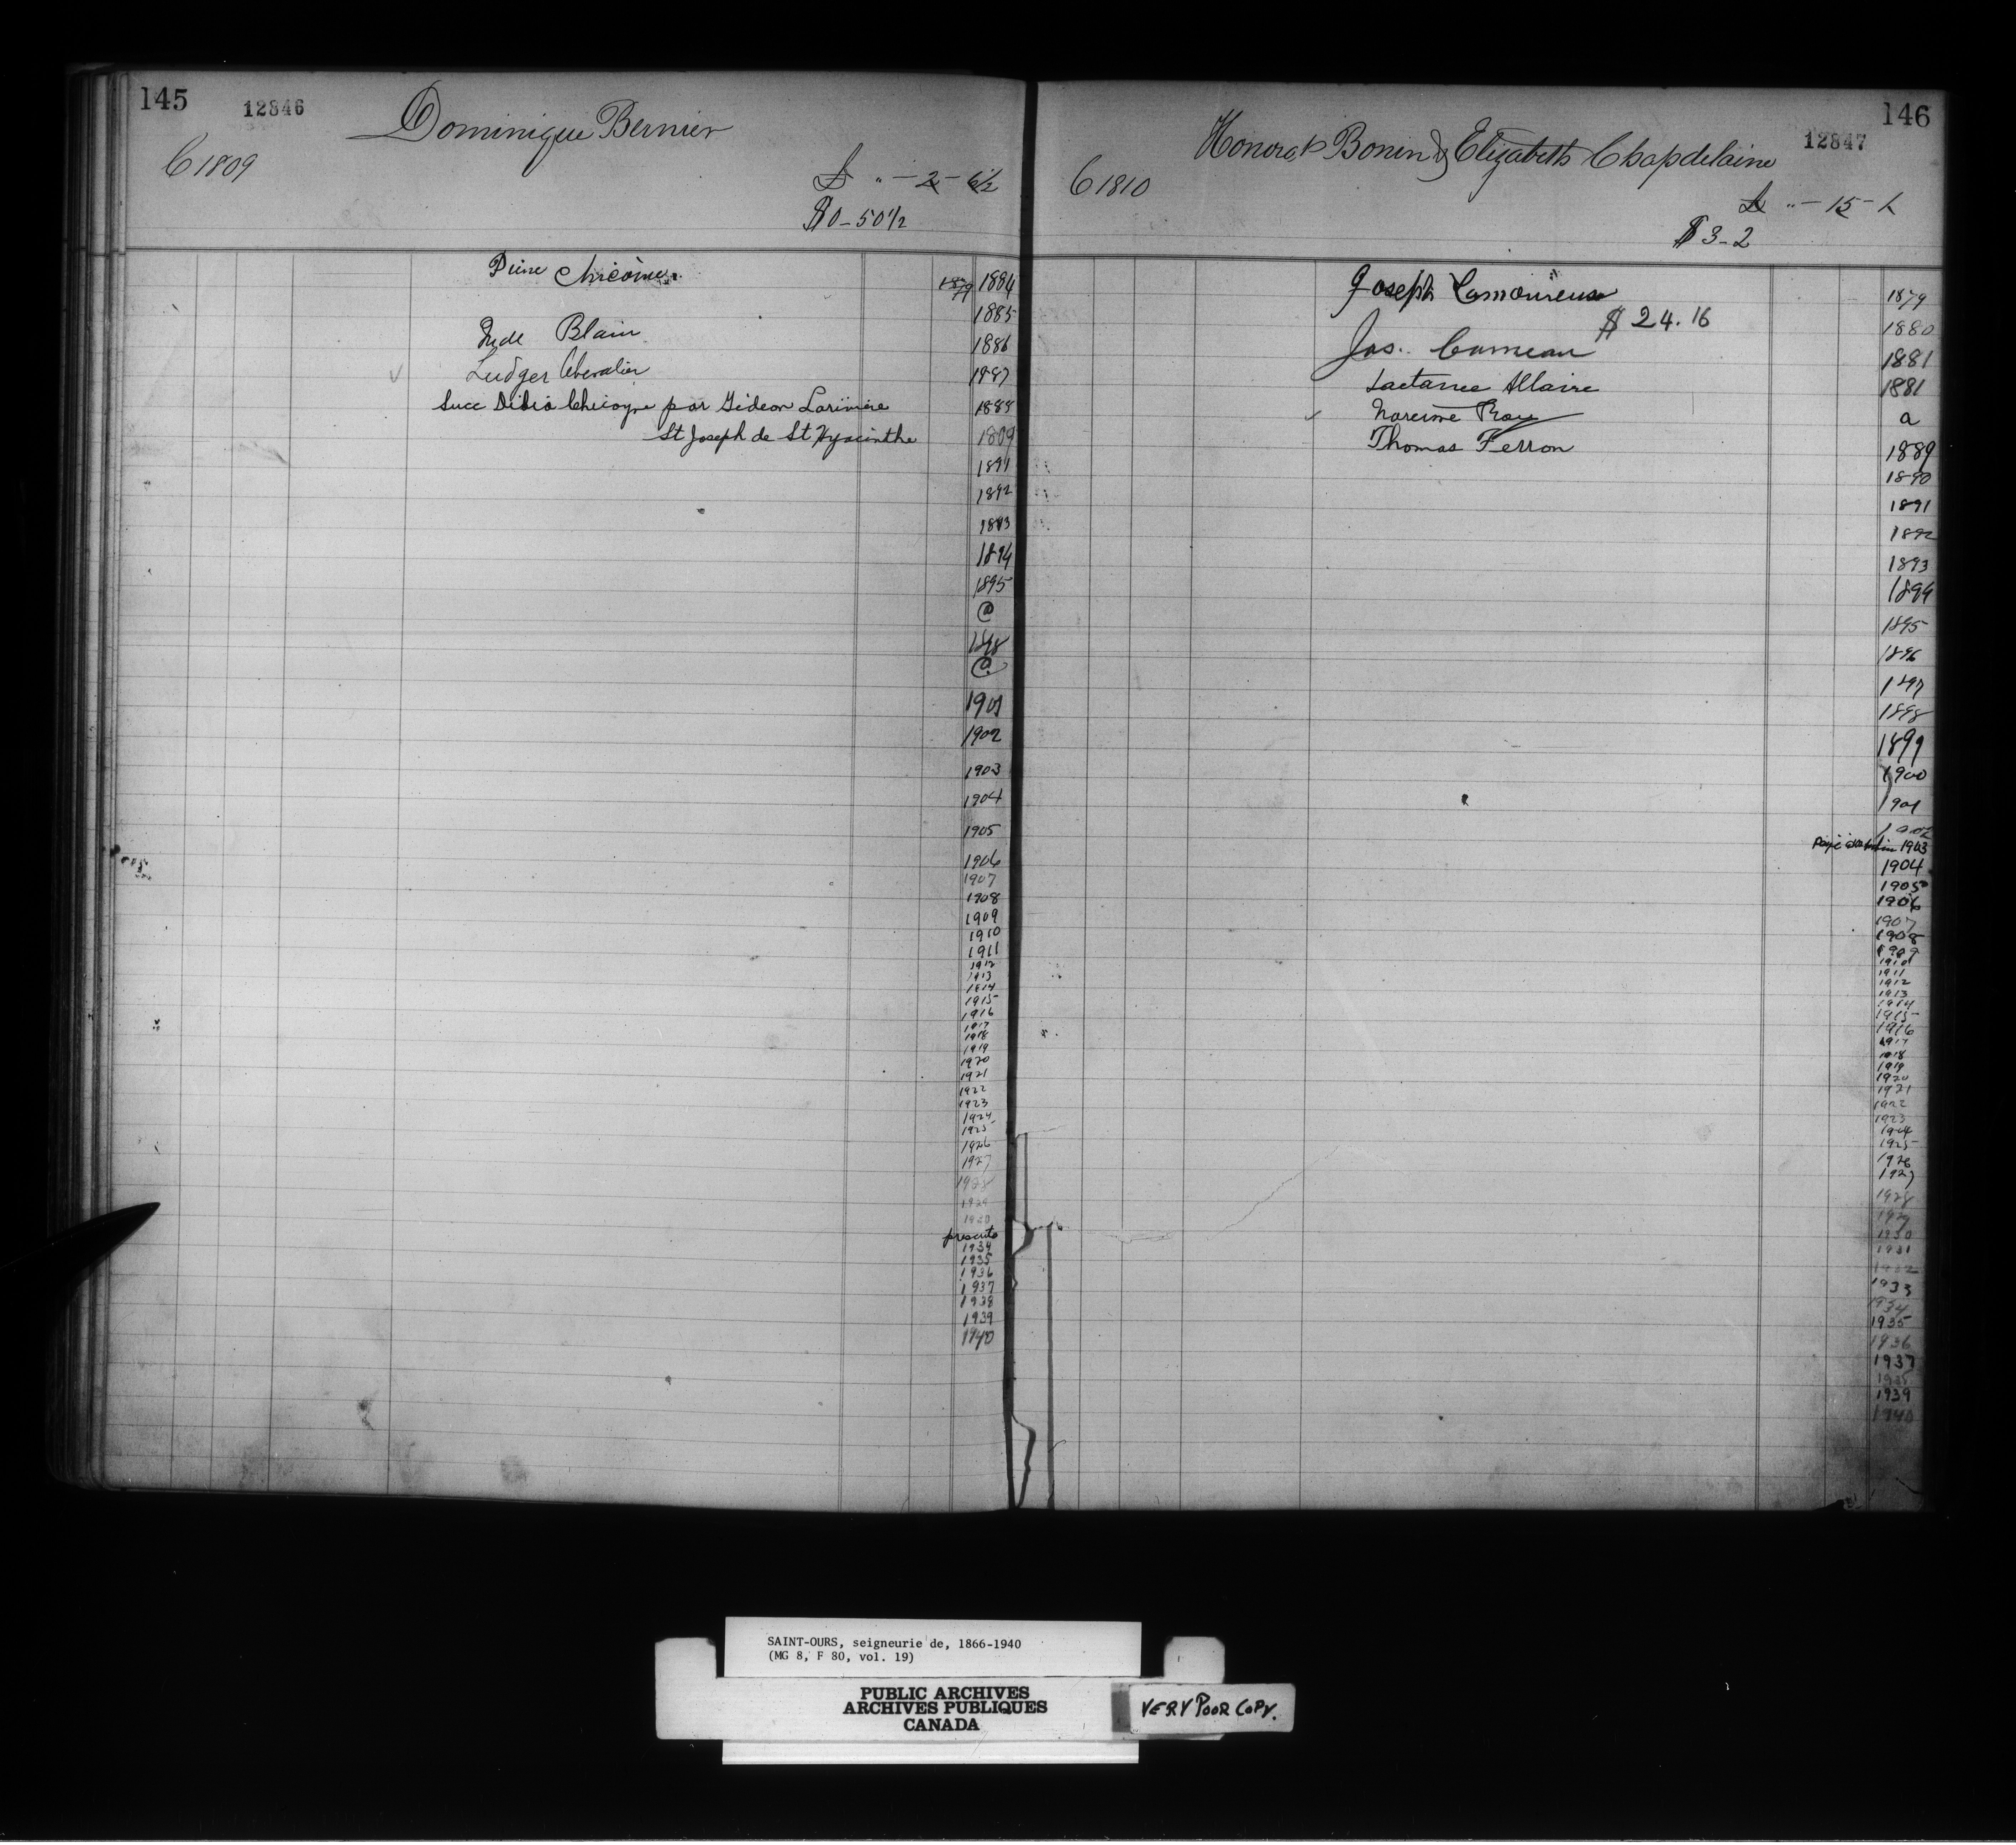 145
12846
Dominique Bernier
C 1809
£ " - 2 - 6½
$0-50 1/2
1879 1884
1885
Blain
1886
Ludger Chevalier
1887
Succ Didia Chicoyne par Gideon Lariviere
1888
St Joseph de St Hyacinthe
1809
1891
1892
1893
1894
1895
@
1898
@
1901
1902
1903
1904
1905
1906
1907
1908
1909
1910
1911
1912
1913
1914
1915
1916
1917
1918
1919
1920
1921
1922
1923
1924
1925
1926
1927
1928
1929
1930
prescrite
1934
1935
1936
1937
1938
1939
1940
146
12847
Honorat Bonin & Elizabeth Chapdelaine
C 1810
£ " - 15 - 1
$3-2
Joseph Lamoureux
1879
$24.16
1880
Jos. Comeau
1881
Lactance Allaire
1881
Narcisse Roy
a
Thomas Ferron
1889
1890
1891
1892
1893
1894
1895
1896
1897
1898
1899
1900
1901
1902
1903
1904
1905
1906
1907
1908
1909
1910
1911
1912
1913
1914
1915
1916
1917
1918
1919
1920
1921
1922
1923
1924
1925
1926
1927
1928
1929
1930
1931
1932
1933
1934
1935
1936
1937
1938
1939
1940
SAINT-OURS, seigneurie de, 1866-1940
(MG 8, F 80, vol. 19)
PUBLIC ARCHIVES
ARCHIVES PUBLIQUES
CANADA
VERY POOR COPY.